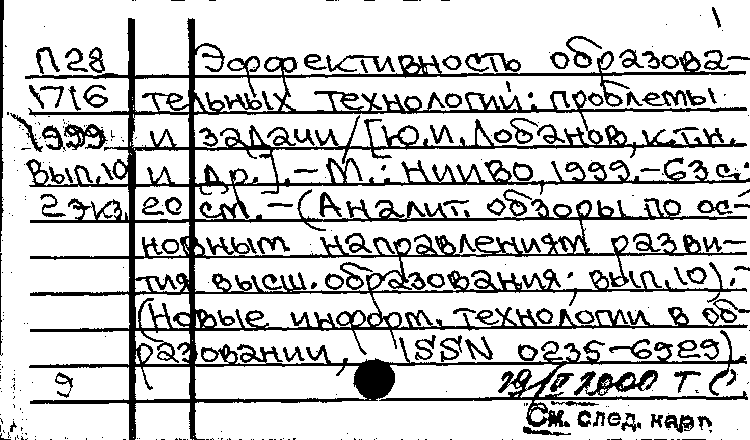 1
П28 Эффективность образова-
1716 тельных технологий: проблемы
1999 и задачи / [Ю.И. Лобанов, к.т.н.
Вып.10 и др.]. - М.: НИИВО, 1999. - 63 с.;
2 экз. 20 см. - (Аналит. обзоры по ос-
новным направлениям разви-
тия высш. образования; вып. 10). -
(Новые информ. технологии в об-
разовании, ISSN 0235-6929).
9 29/II 2000 Т. С.
См. след. карт.